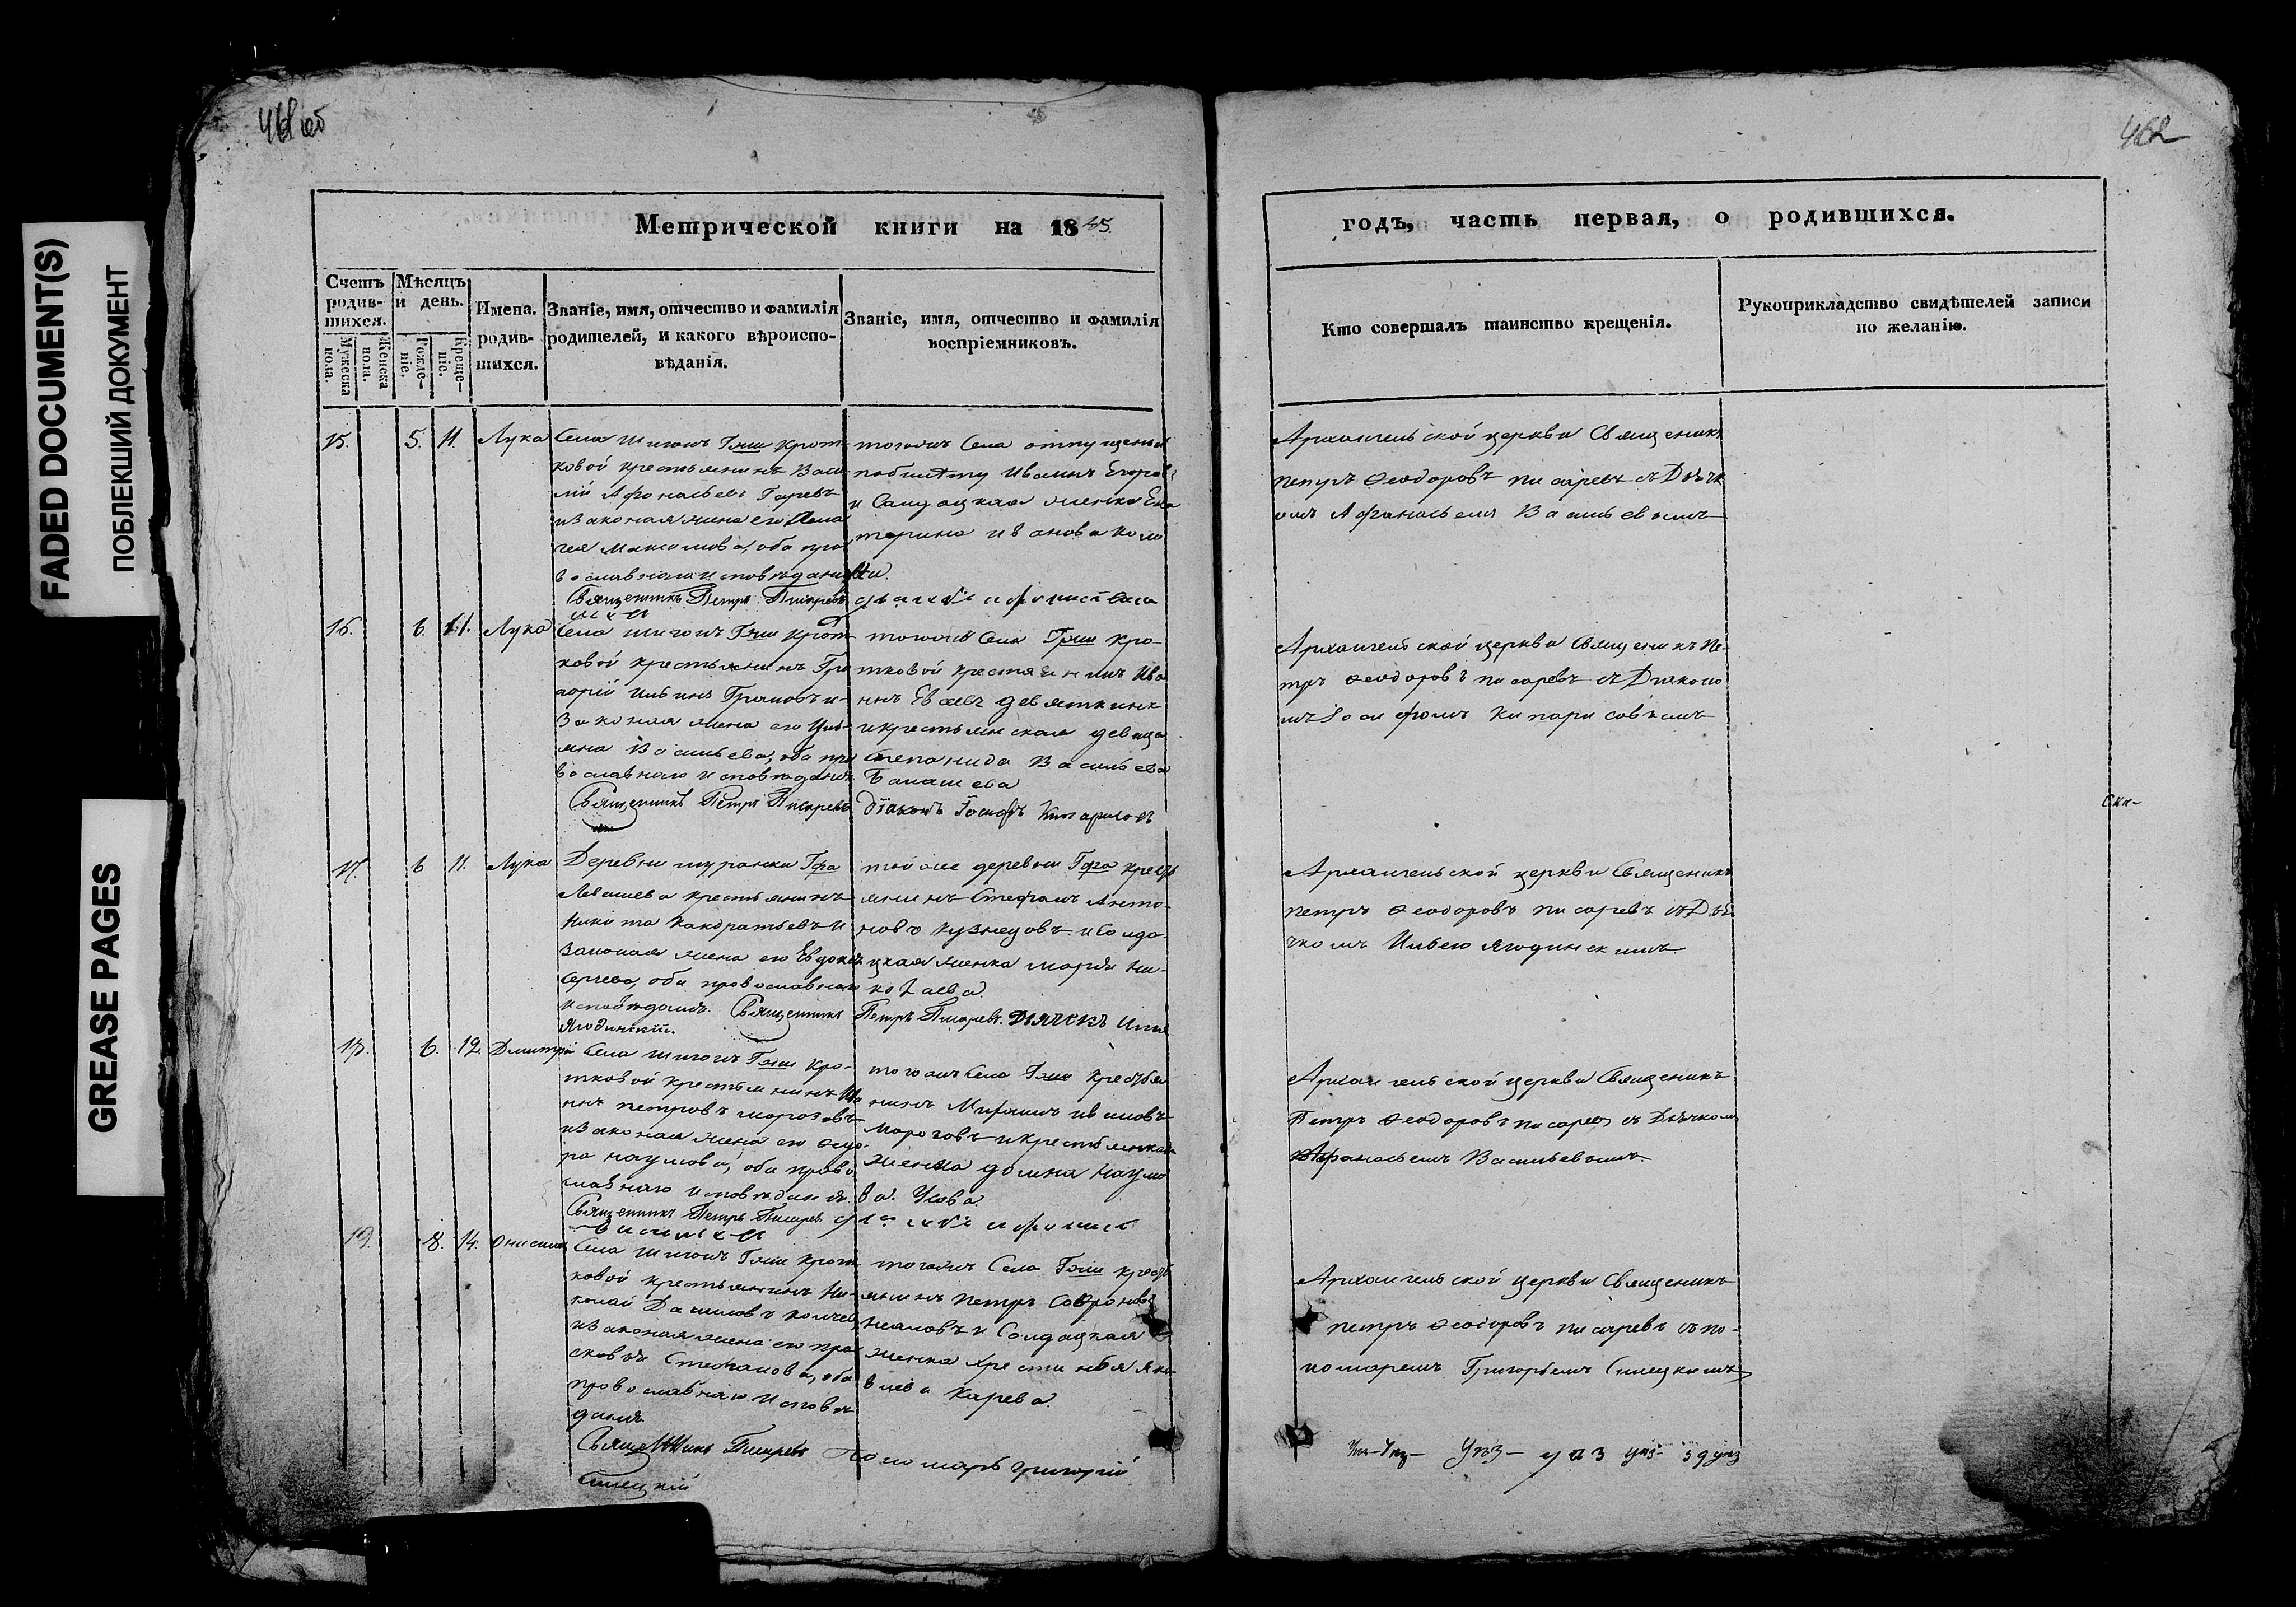 FADED DOCUMENT(S)
ПОБЛЕКШИЙ ДОКУМЕНТ
GREASE PAGES
461 об
462
Метрической книги на 1845.
Счетъ родив-шихся.
Мужеска пола.
Женска пола.
Мѣсяцъ и день.
Рожде-ніе.
Креще-ніе.
Имена. родив-шихся.
Званіе, имя, отчество и фамилія
родителей, и какого вѣроиспо-
вѣданія.
Званіе, имя, отчество и фамилія
воспріемниковъ.
годъ, часть первая, о родившихся.
Кто совершалъ таинство крещенія.
Рукоприкладство свидѣтелей записи
по желанію.
15. 5. 11. Лука
Села Шигонъ Гжи Крот-
ковой крестьянинъ Васи-
лій Афонасьевъ
изаконая жена его
Максимова, оба пра
вославнаго исповѣданія
Священникъ Петръ Писаревъ
тогожъ Села отпущеный
Иванъ Егоровъ
и Салдацкая женка Ека
терина иванова
Архангельской церкви Священикъ
петръ Феодоровъ писаревъ съ Дьячк
омъ Афанасьемъ Васильевымъ
16. 6. 11. Лука
Села Шигонъ Гжи Крот
ковой крестьянинъ Гри
горій Ильинъ
Законая жена его Улья
яна Васильева, оба пра
вославнаго исповѣданія
Священникъ Петръ Писаревъ
тогожъ Села Гжи Кро-
тковой крестьянинъ Ива
нъ девяткинъ
икрестьянская девица
Степанида Васильева
Балашева
Діаконъ Іосифъ Кипарисовъ
Архангельской церкви Священикъ Пе-
тръ Феодоровъ писаревъ съ Діаконо
мъ Іосифомъ Кипарисовымъ
17. 6 11. Лука
Деревни муранки Гфа
Левашева крестьянинъ
Никита Кандратьевъ и
Законая жена его Евдокія
Сергеева, оба православнаго
исповѣданія. Священникъ
Ягодинскій.
той же деревни Гфа кресть
янинъ Стефанъ Анто-
новъ кузнецовъ и Солда-
цкая женка марѳа Ни-
колаева.
Петръ Писаревъ. Дьячекъ Илья
Архангельской церкви Священикъ
петръ Феодоровъ писаревъ съ Дья
чкомъ Ильею Ягодинскимъ.
18. 6. 12. Дмитрій
Села Шигонъ Гжи Кро-
тковой крестьянинъ Ива
нъ петровъ морозовъ
изаконая жена его Федо-
ра наумова, оба право
славнаго исповѣданія.
Священникъ Петръ Писаревъ
тогожъ Села Гжи крестья
нинъ ивановъ
Морозовъ икрестьянская
женка домна Наумо
ва. Усова.
Архангельской церкви Священикъ
Петръ Феодоровъ писаревъ съ Дьячкомъ
Афанасьемъ Васильевымъ.
19. 8. 14. Онисимъ
Села Шигонъ Гжи Крот
ковой крестьянинъ Ни-
колай Даниловъ
изаконая жена его пра
сковья Стефанова, оба
православнаго исповѣ
данія.
Священникъ Писаревъ
Синецкій
тогожъ Села Гжи кресть
янинъ петръ Софроновъ
и Солдацкая
женка Христинья Яко
влева Карева.
Пономарь Григорій
Архангельской церкви Священикъ
петръ Феодоровъ писаревъ съ по-
номаремъ Григорьемъ Синецкимъ